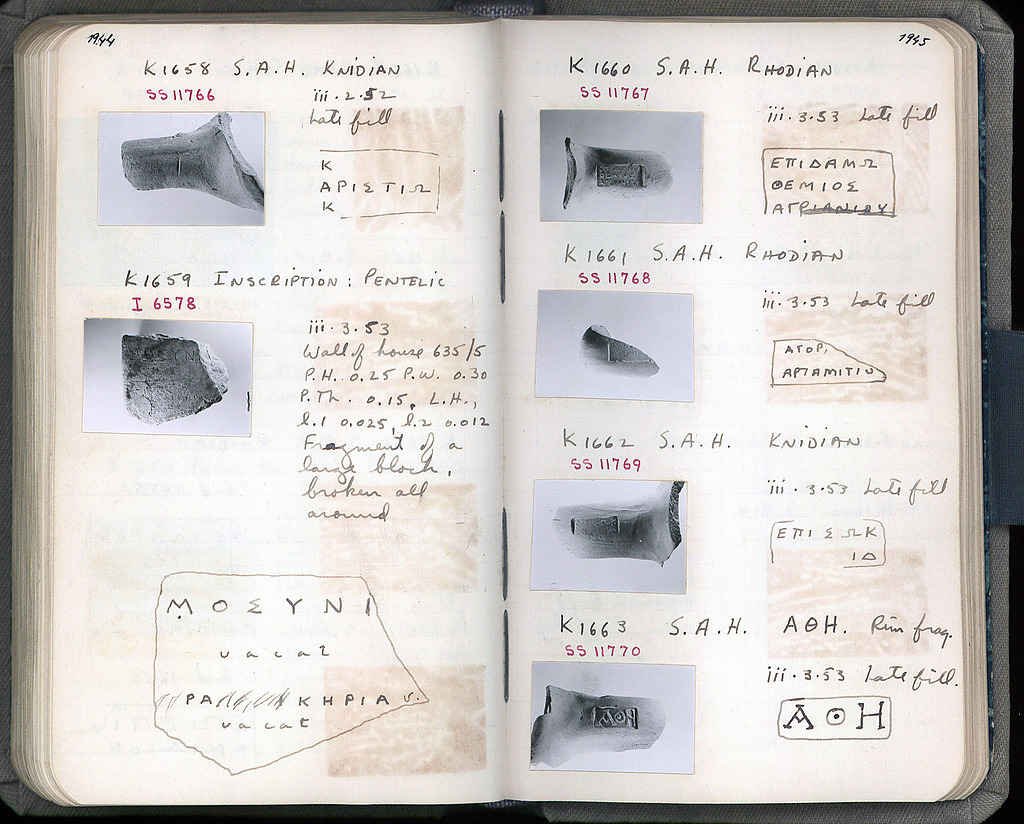 1944
K1658 S.A.H. KNIDIAN
SS 11766
iii.2.52
Late fill
Κ
ΑΡΙΣΤΙΩ
Κ
K1659 INSCRIPTION: PENTELIC
I 6578
iii.3.53
Wall of house 635/5
P.H. 0.25 P.W. 0.30
P.Th. 0.15, L.H.,
l.1 0.025, l.2 0.012
Fragment of a
large block,
broken all
around
ΜΟΣΥΝΙ
vacat
ΡΑ ΚΗΡΙΑ v.
vacat
1945
K1660 S.A.H. RHODIAN
SS 11767
iii.3.53 Late fill
ΕΠΙΔΑΜΩ
ΘΕΜΙΟΣ
ΑΓΡΙΑΝΙΟΥ
K1661 S.A.H. RHODIAN
SS 11768
iii.3.53 Late fill
ΑΓΟΡ
ΑΡΤΑΜΙΤΙΟ
K1662 S.A.H. KNIDIAN
SS 11769
iii.3.53 Late fill
ΕΠΙΣΩΚ
ΙΔ
K1663 S.A.H. ΑΘΗ. Rim frag.
SS 11770
iii.3.53 Late fill.
ΑΘΗ